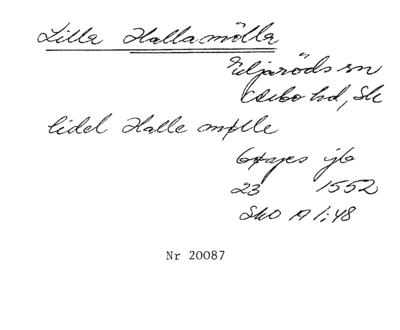 Lilla Hallamölla
Eljaröds sn
Albo hd, Sk
lidel Halle mølle
jb
23 1552
Sk 1:48
Nr 20087